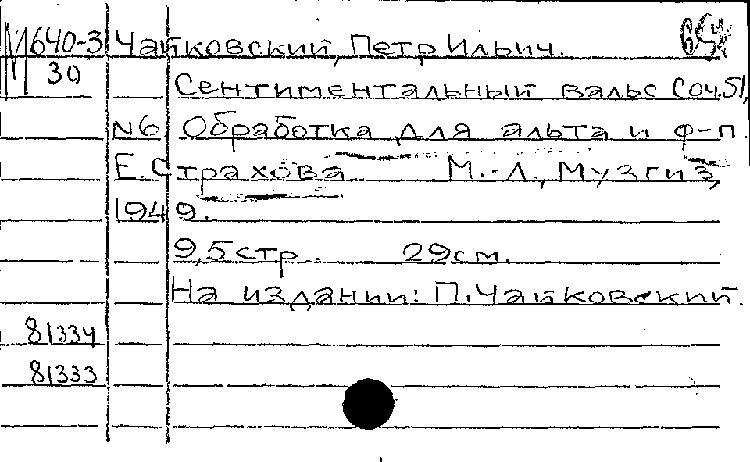 М640-3 Чайковский, Петр Ильич.
30
Сентиментальный вальс Соч.51,
N6 Обработка для альта и ф-п.
Е. Страхова М.-Л., Музгиз,
1949.
9,5 стр. 29 см.
На издании: П. Чайковский.
81334
81333